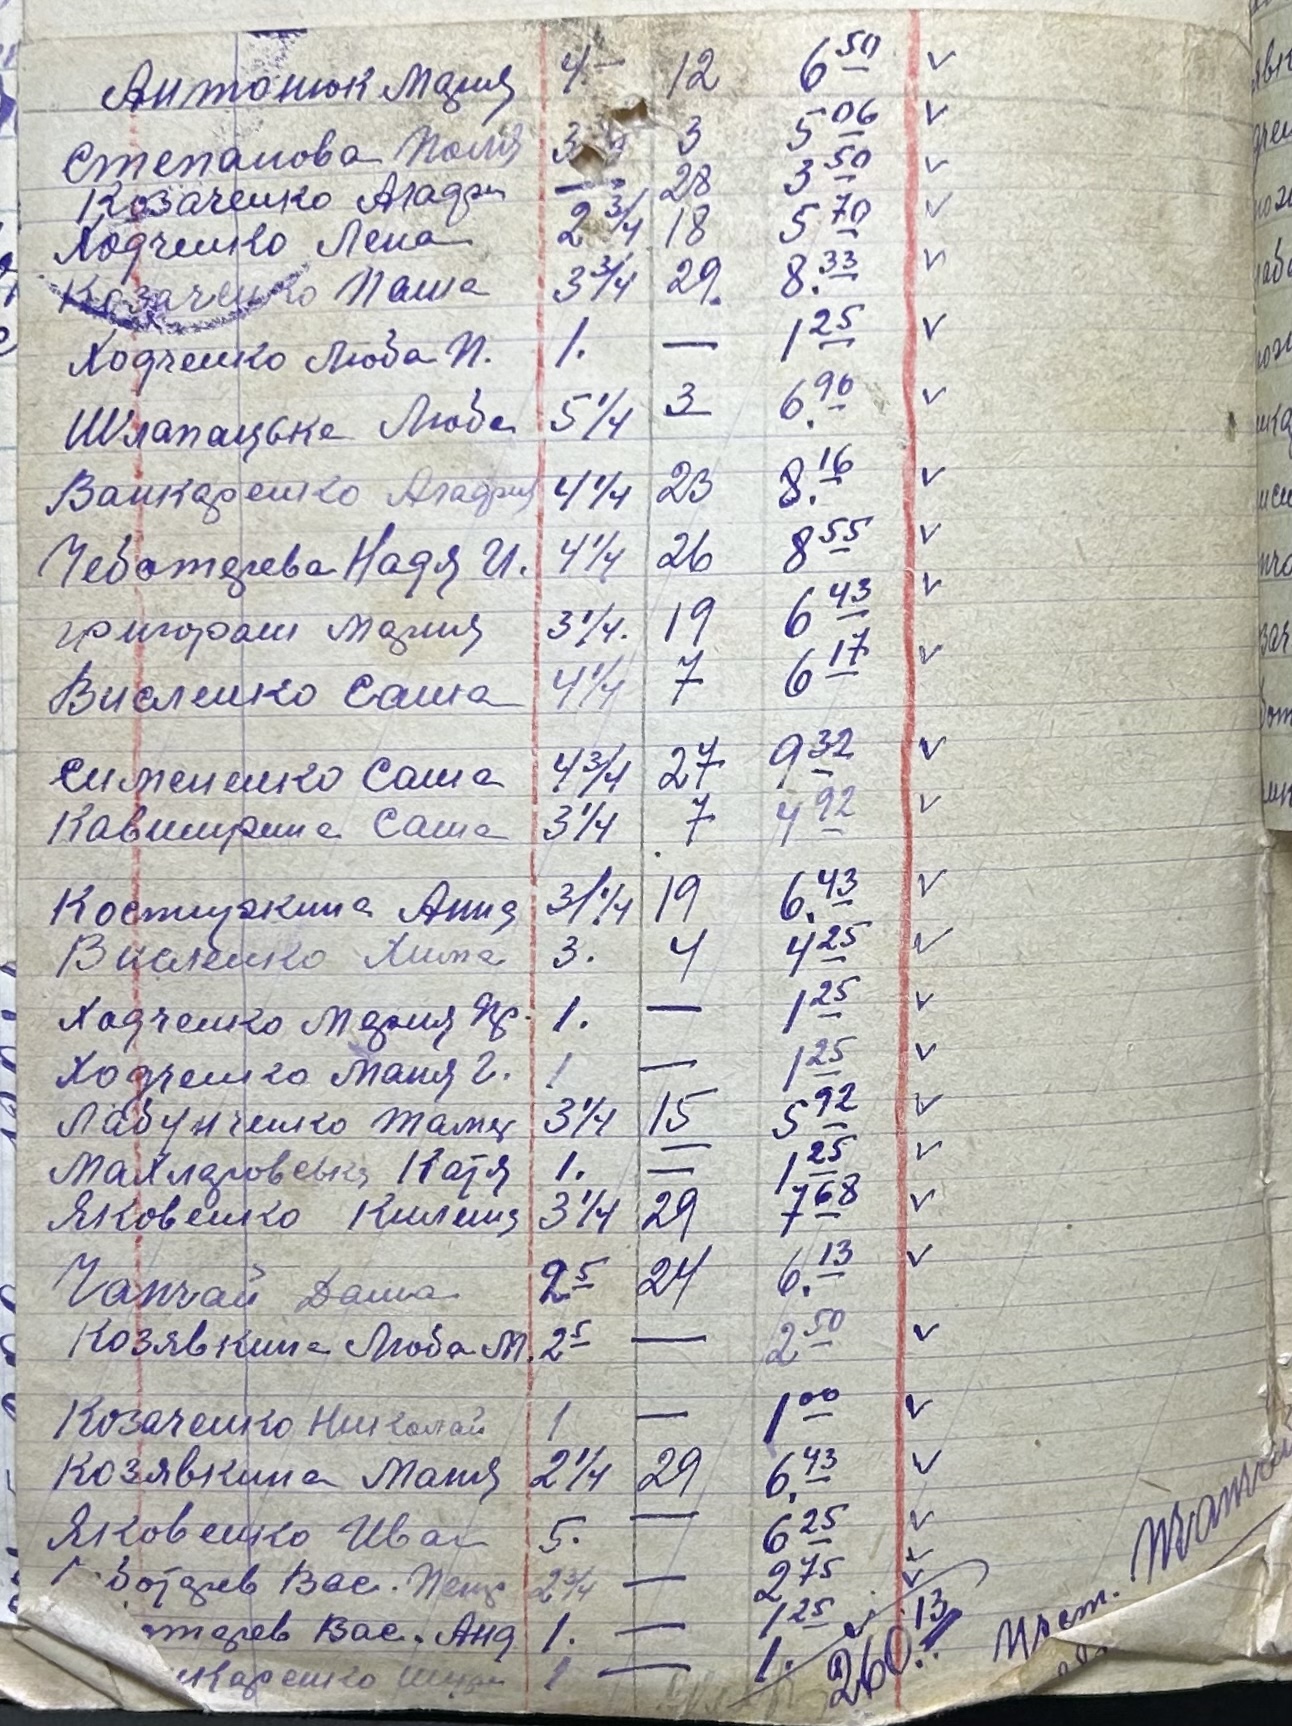 Антонюк Мария 4.– 12 6 50 v
Степанова Поля 3 3 5 06 v
Козаченко Агафи — 28 3 50 v
Ходченко Лена 2 3/4 18 5 70 v
Козаченко Паша 3 3/4 29. 8.33 v
Ходченко Люба П. 1. — 1 25 v
Шлапацька Люба 5 1/4 3 6.90 v
Ванкаренко Агафия 4 1/4 23 8.16 v
Чеботарева Надя И. 4 1/4 26 8 55 v
Григораш Мария 3 1/4. 19 6 43 v
Висленко Саша 4 1/4 7 6 17 v
Симененко Саша 4 3/4 27 9 32 v
Кавширина Саша 3 1/4 7 4 92 v
Костиркина Анна 3 1/4 19 6.43 v
Висленко Хима 3. 4 4 25 v
Ходченко Мария Пр. 1. — 1 25 v
Ходченко Маня Г. 1 — 1 25 v
Лабунченко Тамар 3 1/4 15 5 92 v
Махларовська Катя 1. — 1 25 v
Яковенко Килина 3 1/4 29 7 68 v
Чапчай Даша 2 5 24 6.13 v
Козявкина Люба М. 2 5 — 2 50 v
Козаченко Николай 1 — 1 00 v
Козявкина Маня 2 1/4 29 6.43 v
Яковенко Иван 5. — 6 25 v
ботарев Вас. Петр 2 3/4 — 2 75 v
отарев Вас. Анд 1. — 1 25 v
нкаренко Шура 1 — 1.
260.13